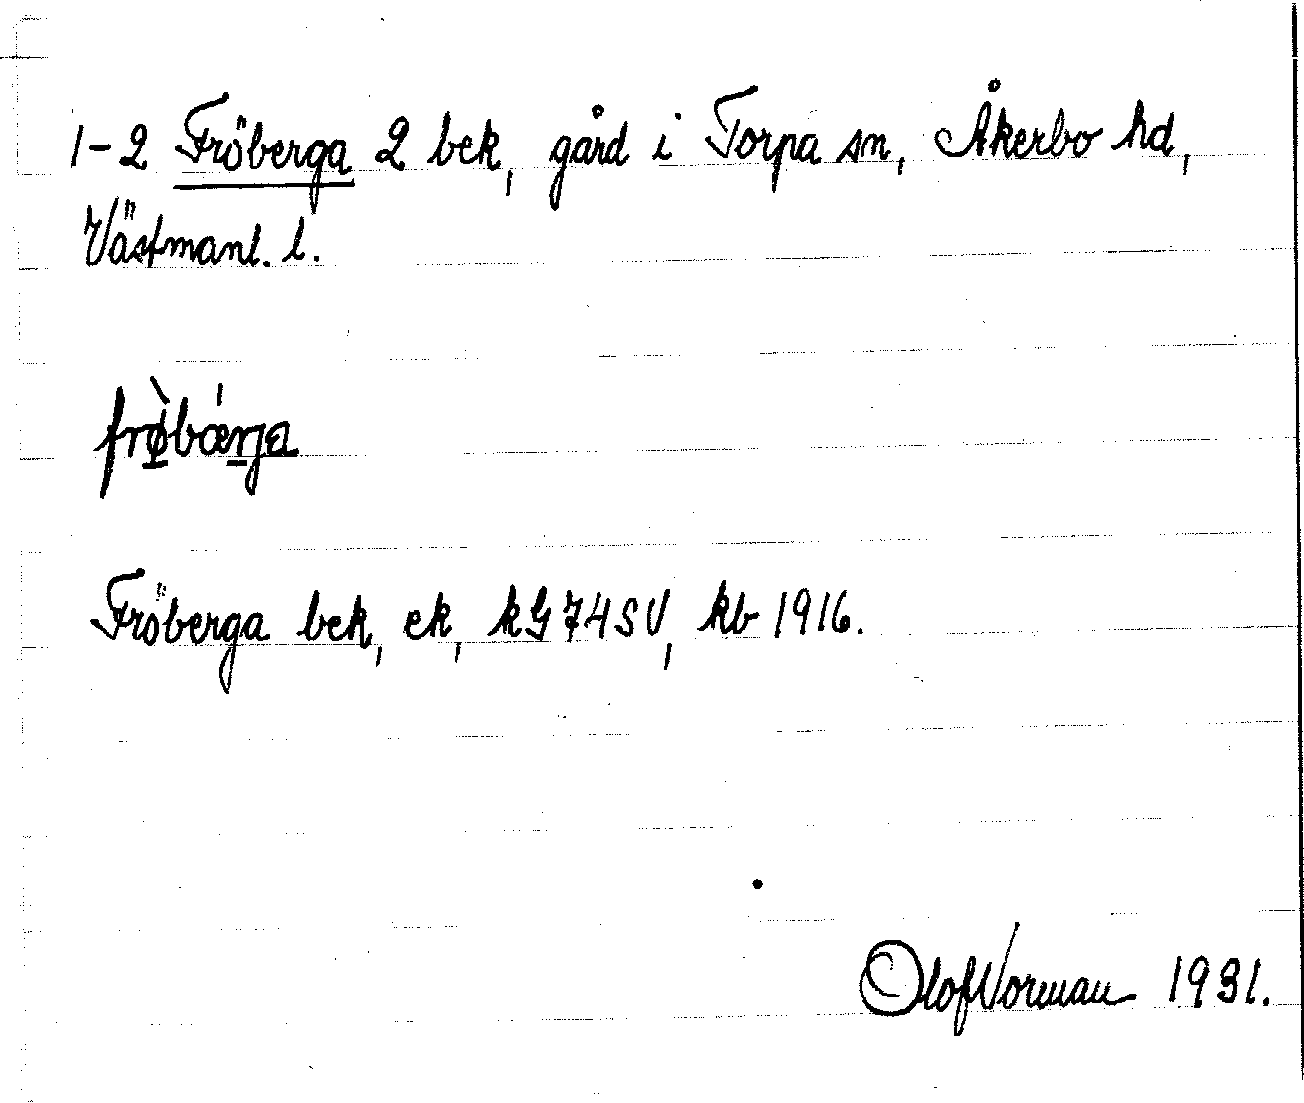 1-2 Fröberga 2 bek, gård i Torpa sn, Åkerbo hd,
Västmanl. l.
frø̀bǽrja
Fröberga bek, ek, kG 74 SV, kb 1916.
Olof Norman 1931.